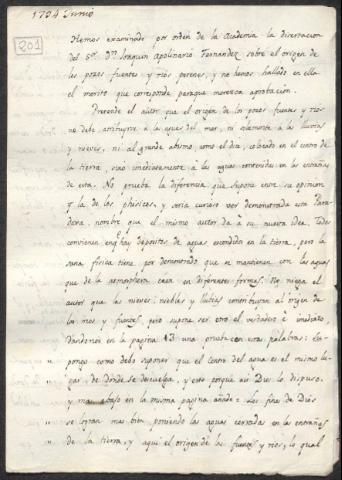 1794 Junio
201
Hemos examinado por orden de la Academia la disertacion
del Sor. Dn. Joaquin Apolinario Fernandez sobre el origen de
los pozos fuentes y rios perenes, y no hemos hallado en ella
el merito que corresponde paraque merezca aprobacion.
Pretende el autor que el origen de los pozos fuentes y rios
no debe atribuirse à las aguas del mar, ni solamente à las lluvias
y nieves, ni al grande abismo como el dice, colocado en el centro de
la tierra, sino inmediatamente à las aguas contenidas en las entrañas
de esta. No prueba la diferencia que supone entre su opinion
y la de los phisicos, y seria curioso ver demonstrada esta Para
doxa, nombre que el mismo autor da à su nueva idea. Todos
convienen en q.e hay depositos de aguas escondidos en la tierra, pero la
sana fisica tiene por demonstrado que se mantienen con las aguas
que de la atmosphera caen en diferentes formas. No niega el
autor que las nieves, nieblas y lluvias contribuyan al origen de
los rios y fuentes, pero supone ser otro el verdadero è inmediato
dandonos en la pagina 13 una prueba con estas palabras: Su-
pongo como debo suponer que el centro del agua es el mismo lu-
gar, de donde se descuelga, y esto porque asi Dios lo dispuso.
y mas abajo en la misma pagina añade: Los fines de Dios
" se logran mas bien poniendo las aguas cerradas en las entrañas
" de la tierra, y aqui el origen de las fuentes y rios, lo qual